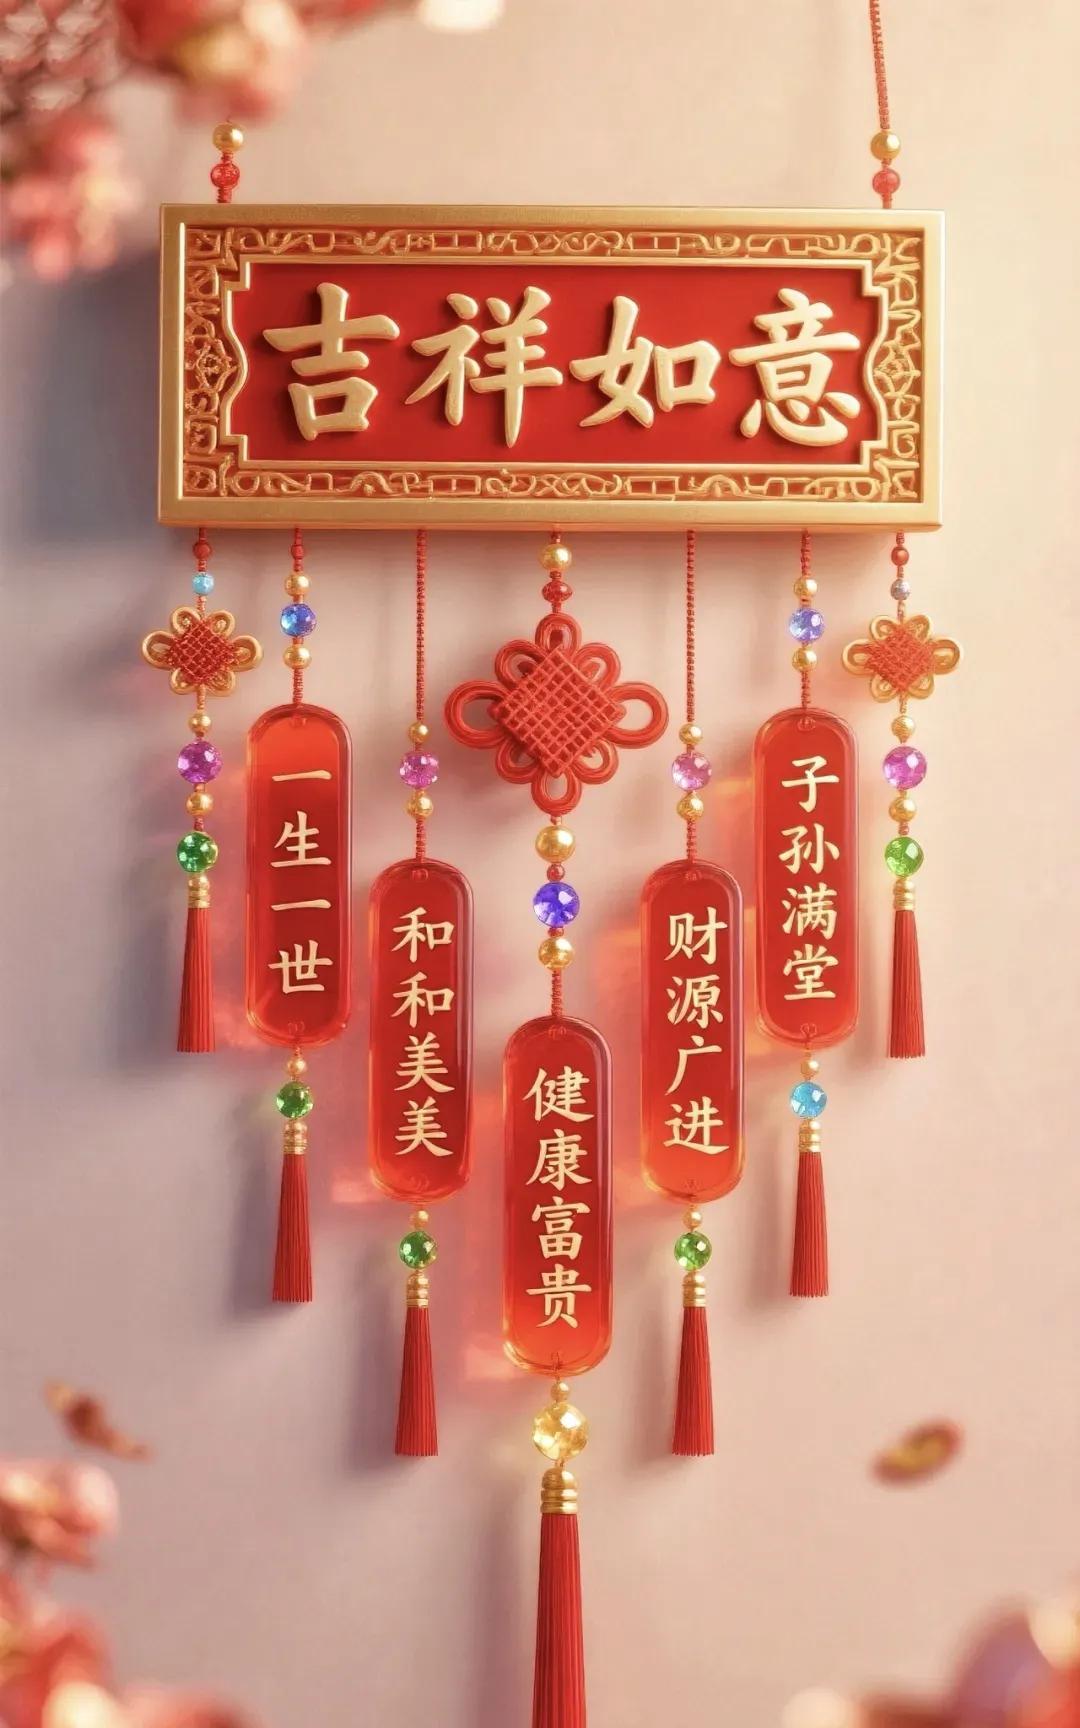 吉祥如意
一生一世
和和美美
健康富贵
财源广进
子孙满堂